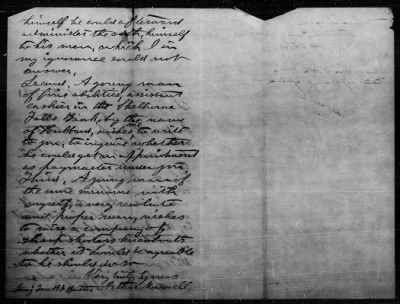 himself he could afterward
administer the oath, himself
to his men, which I in
my ignorance could not
answer.
Second, A young man
of fine abilities, assistant
cashier in the Shelburne
Falls Bank, by the name
of Hubbard, wishes to write
to you, to inquire whether
he could get an appointment
as paymaster under you
Third, A young man of
the same surname with
myself, a very resolute
and proper man, wishes
to raise a company of
sharp shooters hereabouts
whether it would be agreeable
to he should do so
Very truly yours